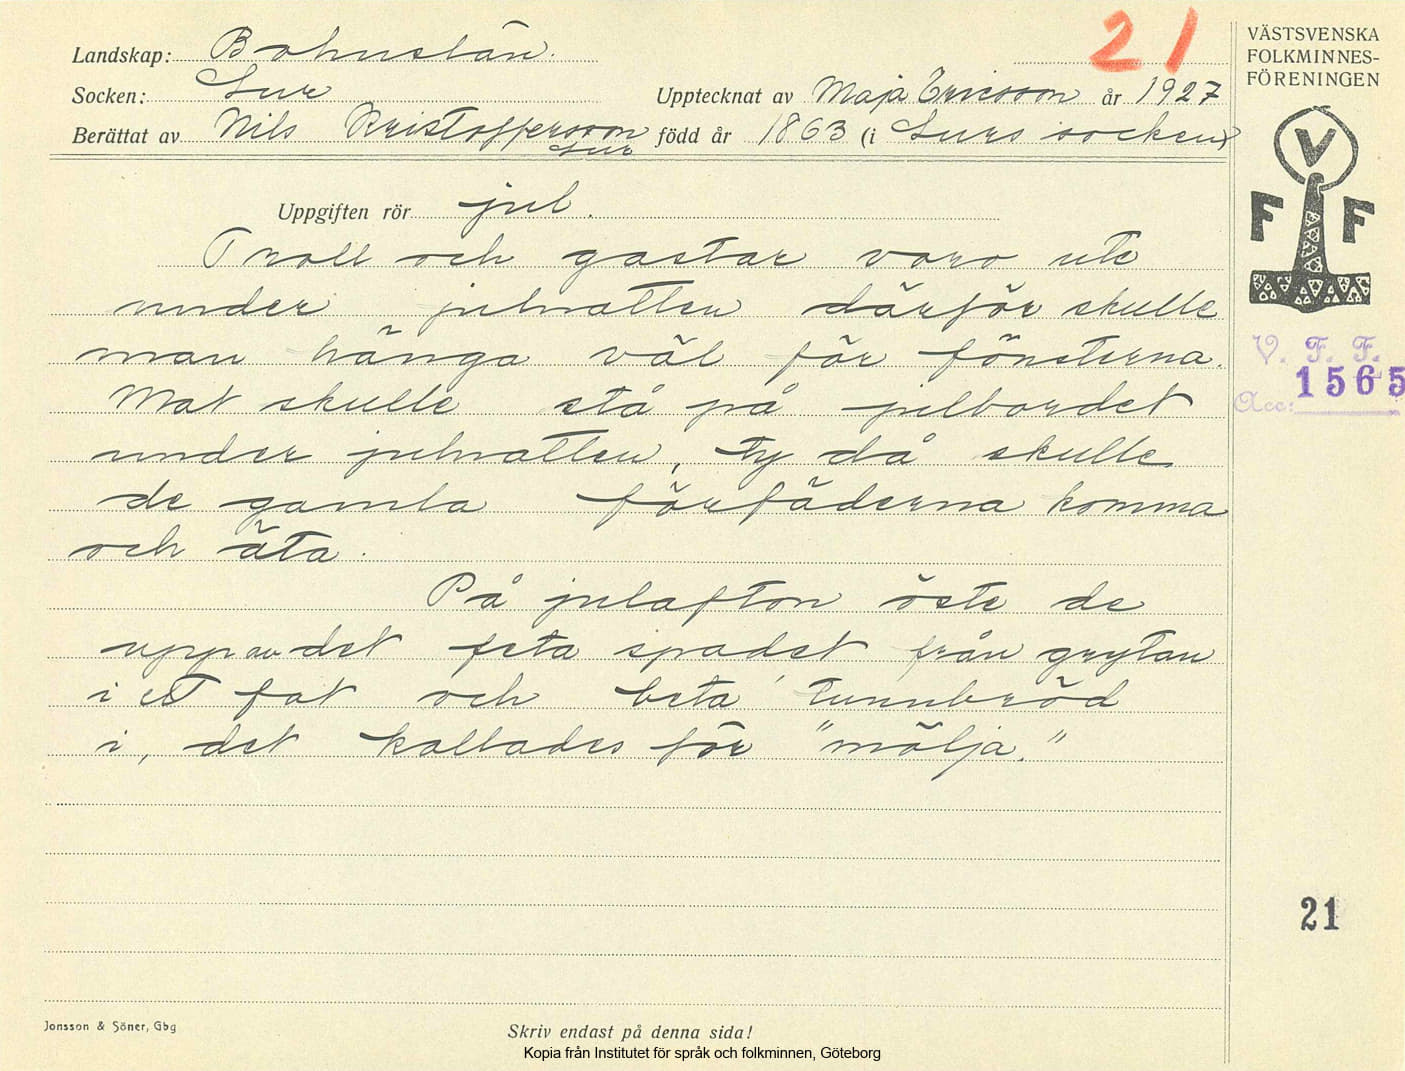 21
VÄSTSVENSKA
FOLKMINNES-
FÖRENINGEN
Landskap: Bohuslän.
Socken: Lur
Upptecknat av Maja Ericsson år 1927
Berättat av Nils Kristoffersson Lur född år 1863 (i Lurs socken)
V
F F
Uppgiften rör jul.
Troll och gastar voro ute
under julnatten därför skulle
man hänga väl för fönsterna.
Mat skulle stå på julbordet
under julnatten, ty då skulle
de gamla förfäderna komma
och äta.
På julafton öste de
upp av det feta spadet från grytan
i ett fat och beta tunnbröd
i, det kallades för "mölja."
V. F. F.
Acc: 1565
21
Jonsson & Söner, Gbg
Skriv endast på denna sida!
Kopia från Institutet för språk och folkminnen, Göteborg